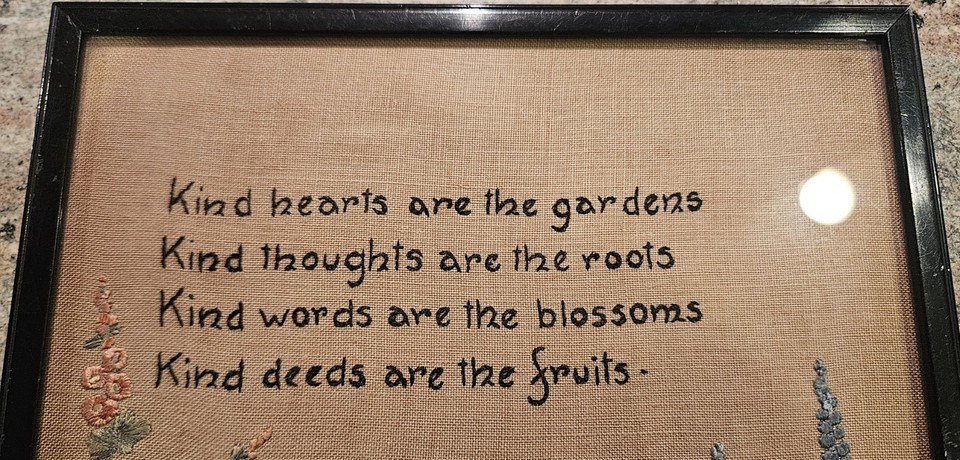 Kind hearts are the gardens
Kind thoughts are the roots
Kind words are the blossoms
Kind deeds are the fruits.